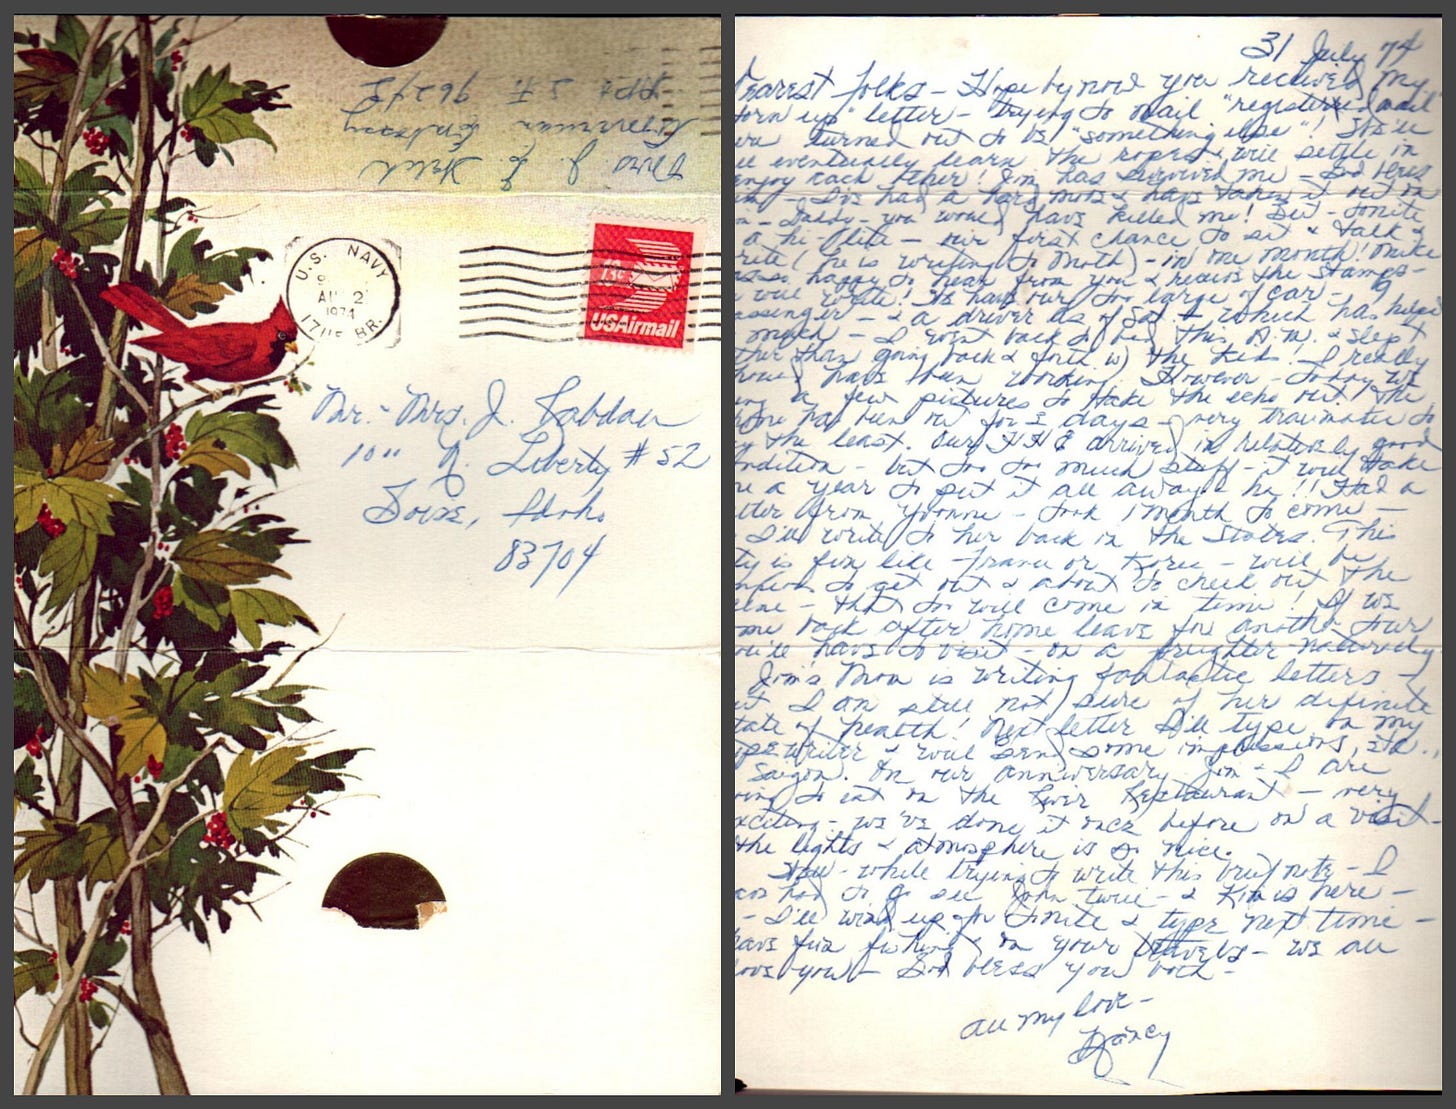 Mrs. J. J.
American Embassy
APO S.F. 96243
U.S. NAVY
AUG 2
1974
17115 BR.
13c
USAirmail
Mr. & Mrs. J.
10" N. Liberty #52
Boise, Idaho
83704
31 July 74
Dearest folks – Hope by now you received my
torn up" letter – trying to mail "registered mail"
turned out to be "something else"! We'll
eventually learn the ropes & will settle in
enjoy each other! Jim has survived me – God bless
I've had a hard month & have taken it out on
Daddy – you would have killed me! But – tonite
a hi Olite – our first chance to sit & talk &
rite (he is writing to Moth) – in one month! Mike
happy to hear from you & receive the stamps –
will write! We have our too large of car – 9
assenger – & a driver as of Sat. – which has helped
much – I went back to bed this A.M. & slept
ther than going back & forth w) the kids! I really
have than working. However – today we
a few pictures to take the echo out! The
has been out for 2 days – very traumatic to
y the least. Our HHE arrived in relatively good
ndition – but too too much stuff – it will take
me a year to put it all away – ha!! Had a
tter from Yvonne – took 1 month to come –
I'll write to her back in the States. This
ty is fun like France or Korea – will be
to get out & about to check out the
– that too will come in time! If we
me back after home leave for another tour
ou'll have to visit – on a freighter – naturally
Jim's Mom is writing fantastic letters –
ut I am still not sure of her definite
tate of health! Next letter I'll type on my
ypewriter & will send some impressions, etd.,
Saigon. On our anniversary Jim & I are
oing to eat on the River Restaurant – very
xciting – we've done it once before on a visit –
the lights & atmosphere is so nice.
while trying to write this brief note – I
had to go see John twice – & Kim is here –
– I'll wind up for tonite & type next time –
have fun fishing & on your travels – we all
love you – God bless you both –
All my love –
Nancy